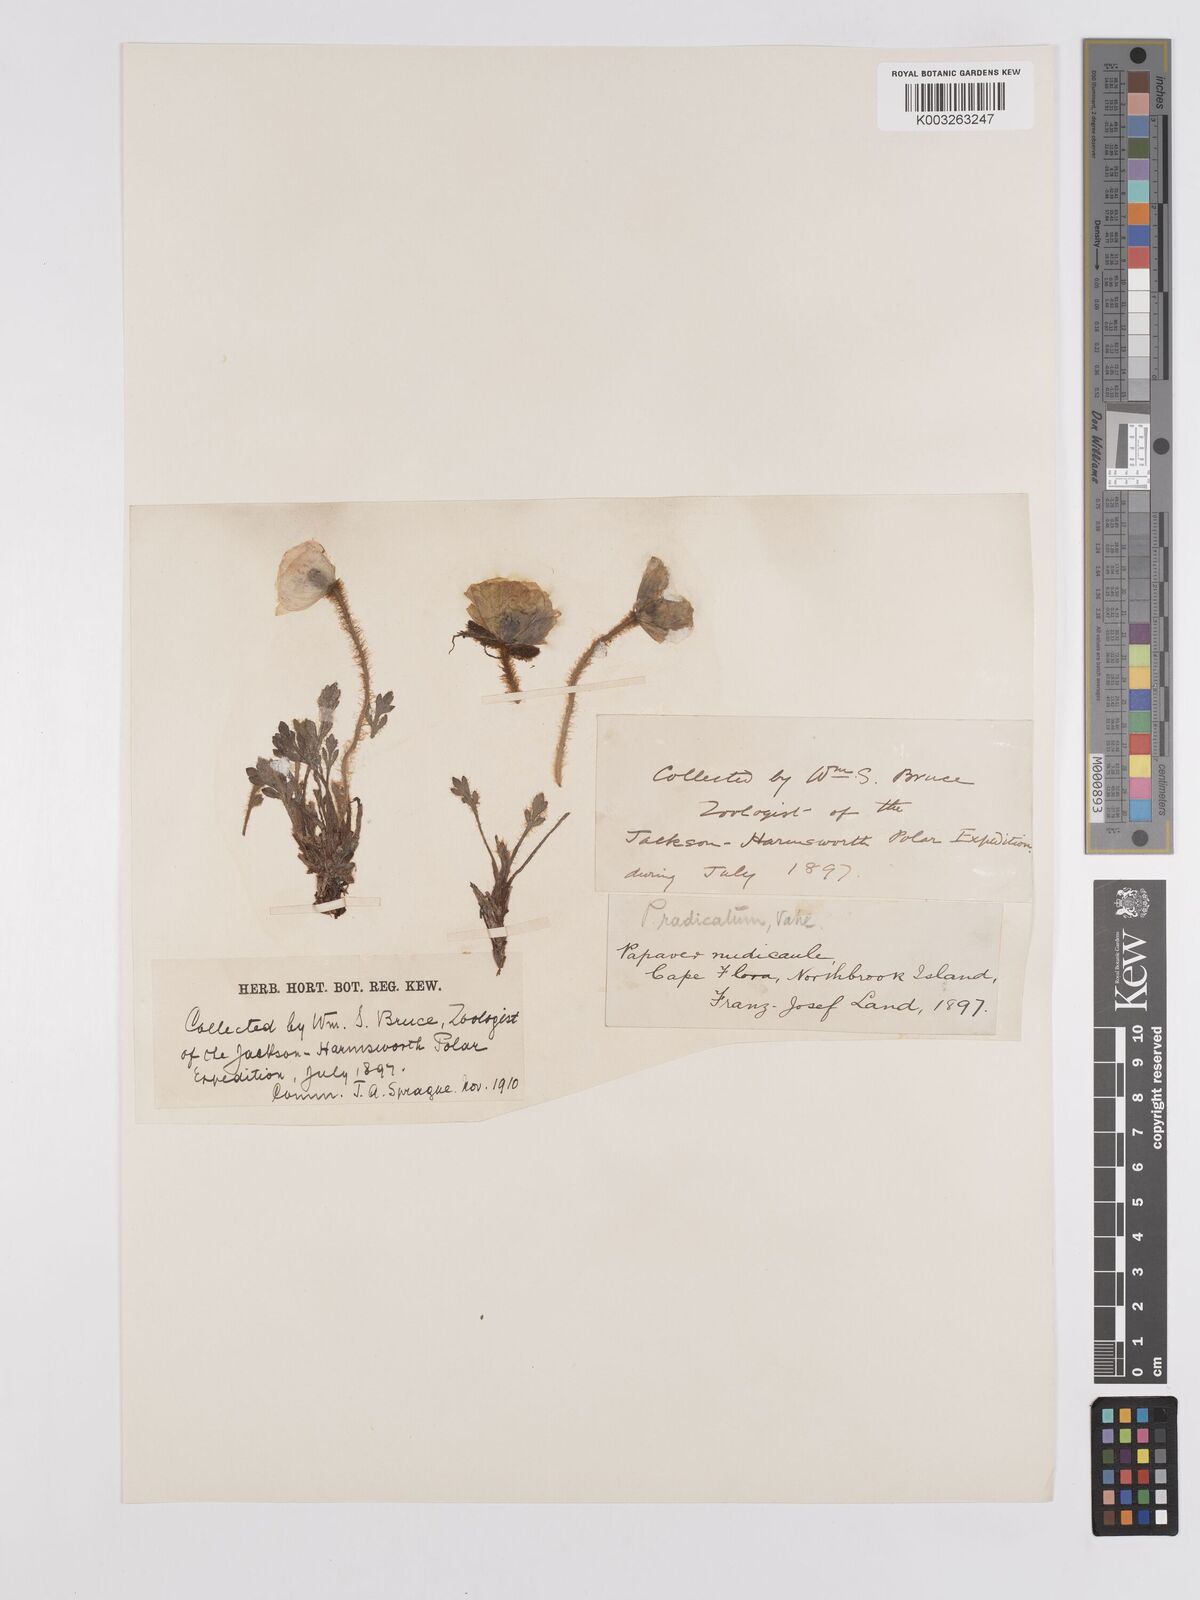 ROYAL BOTANIC GARDENS KEW
K003263247
Collected by Wm. S. Bruce
Zoologist of the
Jackson-Harmsworth Polar Expedition.
during July 1897.
P. radicatum, Vahl.
Papaver nudicaule,
Cape Flora, Northbrook Island,
Franz-Josef Land, 1897.
HERB. HORT. BOT. REG. KEW.
Collected by Wm. S. Bruce, Zoologist
of the Jackson-Harmsworth Polar
Expedition, July 1897.
Comm. T. A. Sprague. Nov. 1910
inches
centimetres
Density
Don Williams
M000893
KEW
Royal Botanic Gardens
0 1 2 3 4 5 6 7 8 9 10
cm
copyright reserved